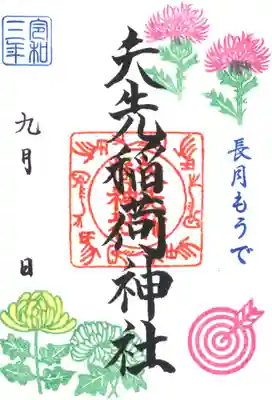 長月もうで
矢先稲荷神社
令和
三年
九月 日